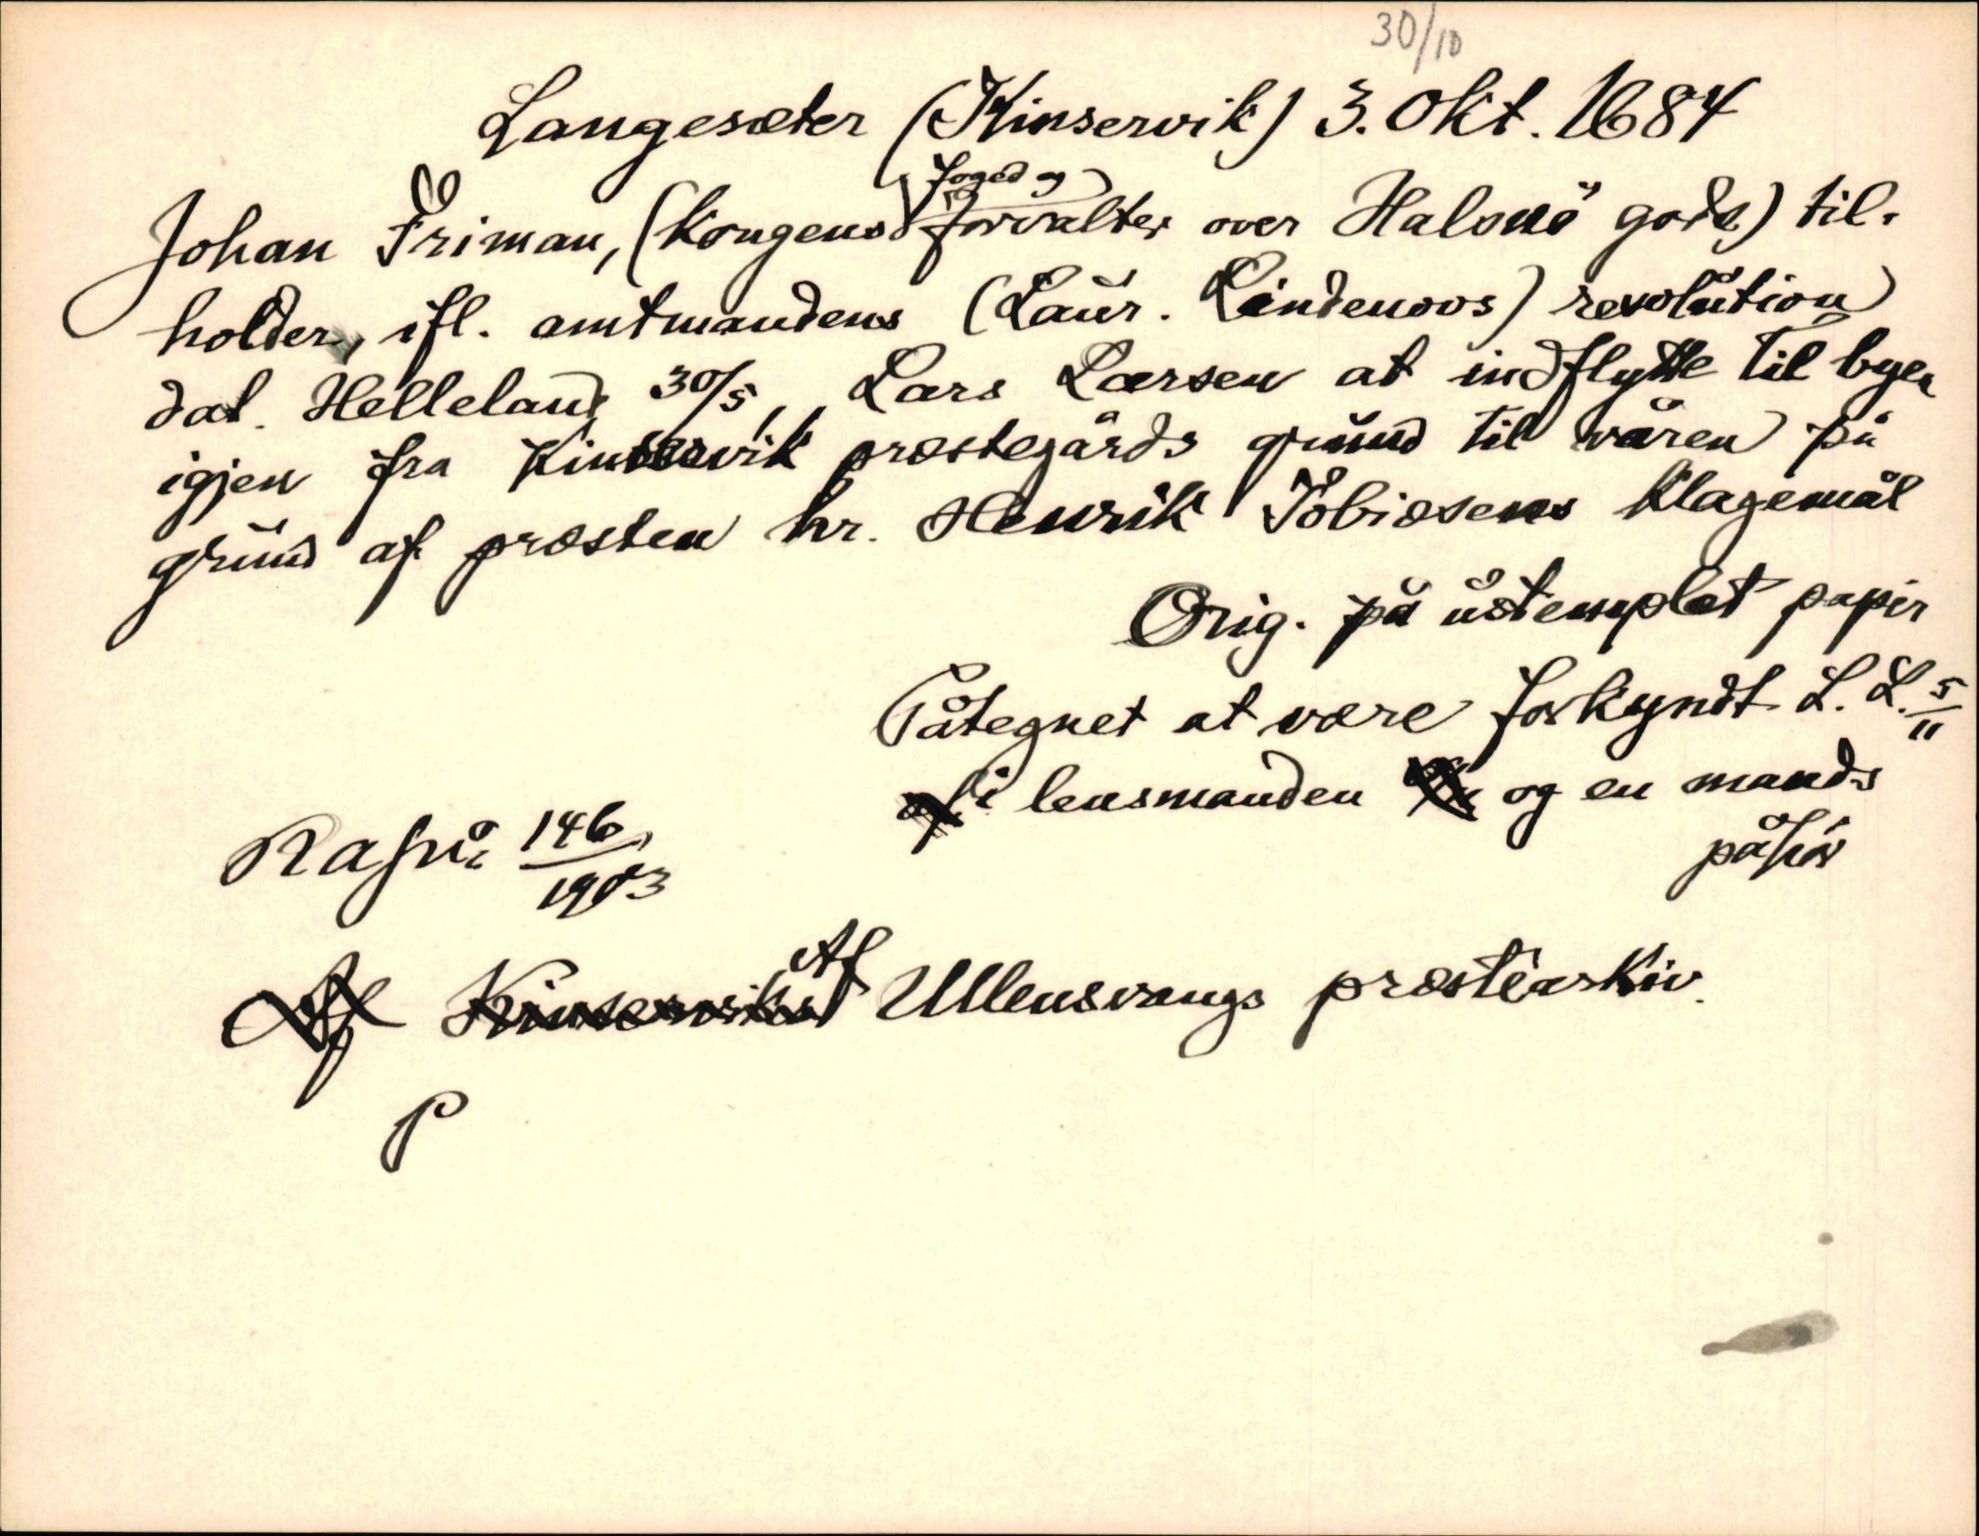 30/10
Langesæter (Kinservik) 3. Okt. 1684
foged og
Johan Friman, (kongens forvalter over Halsnö gods) til-
holder, ifl. amtmandens (Laur. Lindenovs) resolution
dat. Helleland 30/5, Lars Larsen at indflytte til byen
igjen fra Kinservik præstegårds grund til våren på
grund af præsten hr. Henrik Tobiasens klagemål
Orig. på ustemplet papir
Påtegnet at være forkyndt L. L. 5/11
i lensmanden og en mands
påhør
146/1903
Af Kinserviks Af Ullensvangs præstearkiv.
P